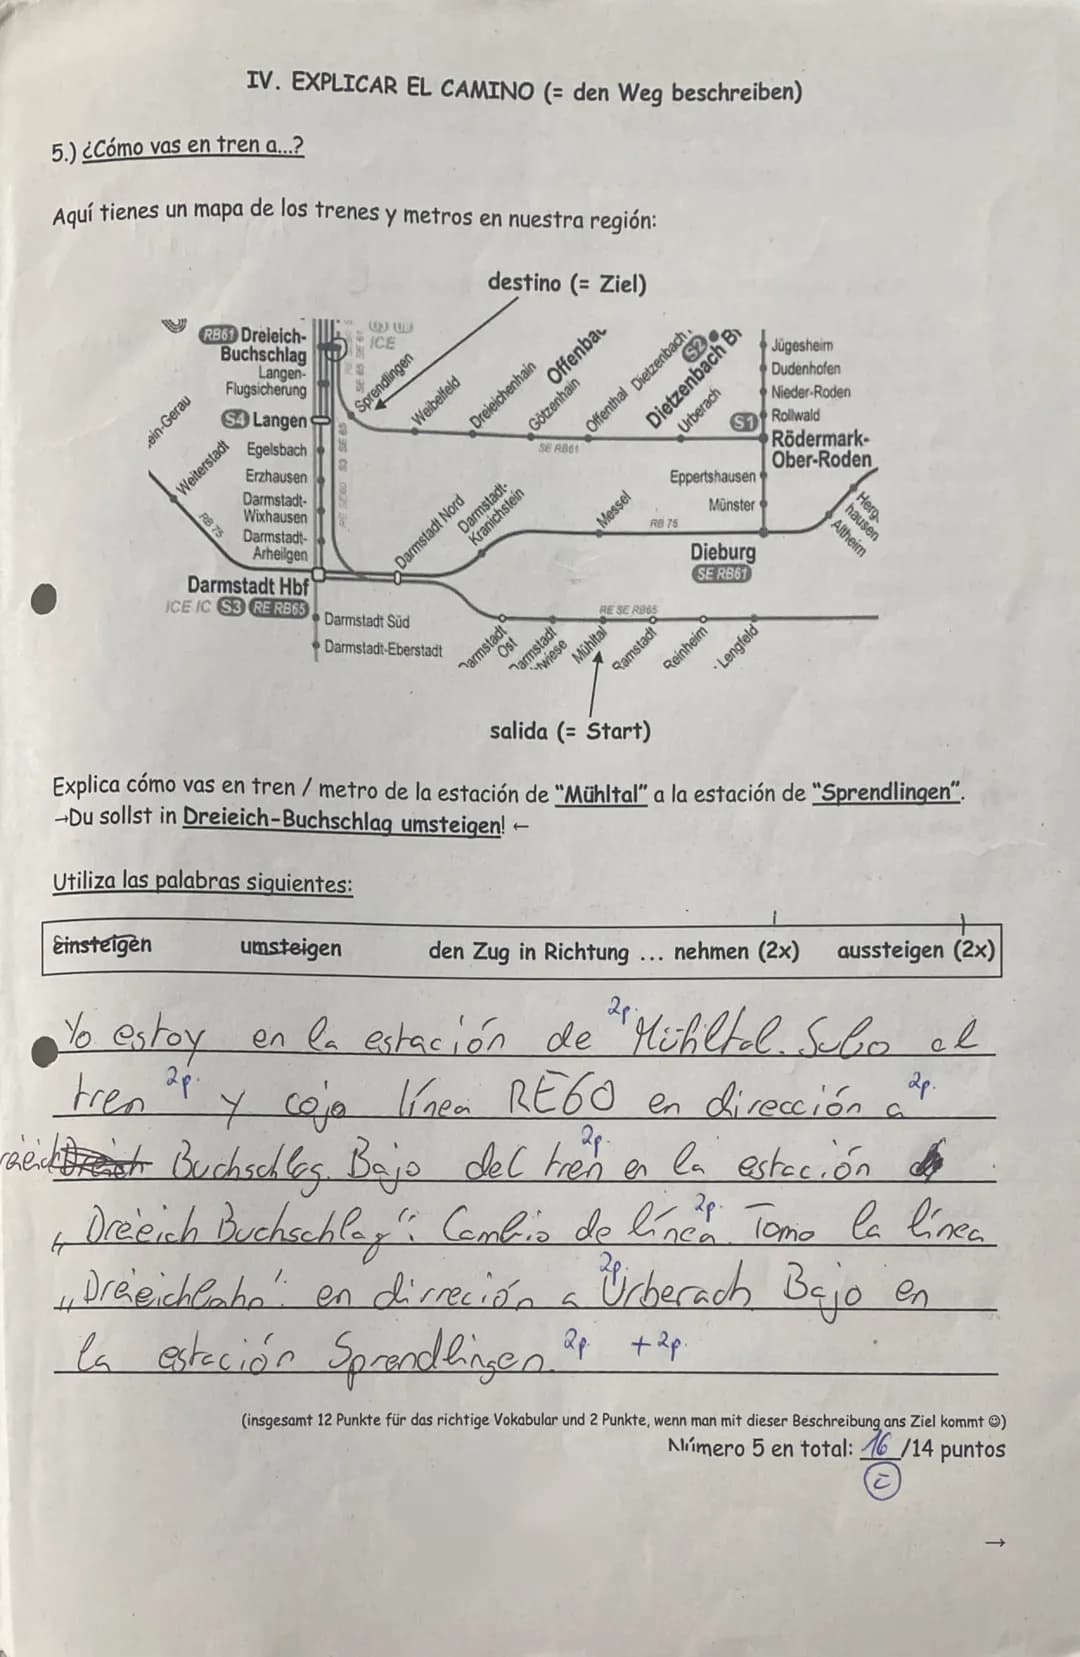 IV. EXPLICAR EL CAMINO (= den Weg beschreiben)
5.) ¿Cómo vas en tren a...?
Aquí tienes un mapa de los trenes y metros en nuestra región:
destino (= Ziel)
RB61 Dreieich-
Buchschlag
Langen-
Flugsicherung
S4 Langen
Egelsbach
Erzhausen
Darmstadt-
Wixhausen
Darmstadt-
Arheilgen
Darmstadt Hbf
ICE IC S3 RE RB65
Darmstadt Süd
Darmstadt-Eberstadt
ein-Gerau
Weiterstadt
RB 75
ICE
Sprendlingen
Weibelfeld
Dreieichenhain
Offenba
Götzenhain
Offenthal
Dietzenbach
S2
Dietzenbach B
Urberach
SE RB61
S1
Jügesheim
Dudenhofen
Nieder-Roden
Rollwald
Rödermark-
Ober-Roden
Eppertshausen
Münster
Dieburg
SE RB61
Herg-
hausen
Altheim
Darmstadt Nord
Darmstadt-
Kranichstein
Messel
RB 75
RE SE RB65
armstadt
Ost
armstadt
twiese
Mühltal
Ramstadt
Reinheim
Lengfeld
salida (= Start)
Explica cómo vas en tren / metro de la estación de "Mühltal" a la estación de "Sprendlingen".
→Du sollst in Dreieich-Buchschlag umsteigen! ←
Utiliza las palabras siguientes:
einsteigen umsteigen den Zug in Richtung ... nehmen (2x) aussteigen (2x)
Yo estoy en la estación de "Mühltal. Subo al
tren y cojo línea RE60 en dirección a
Buchschlag. Bajo del tren en la estación
„Dreieich Buchschlag". Cambio de línea. Tomo la línea
„Dreieichbahn". en dirreción a Urberach Bajo en
la estación Sprendlingen.
2p.
2p.
2p.
2p.
2p.
2p.
2p. +2p.
(insgesamt 12 Punkte für das richtige Vokabular und 2 Punkte, wenn man mit dieser Beschreibung ans Ziel kommt ☺)
Número 5 en total: 16 /14 puntos
→